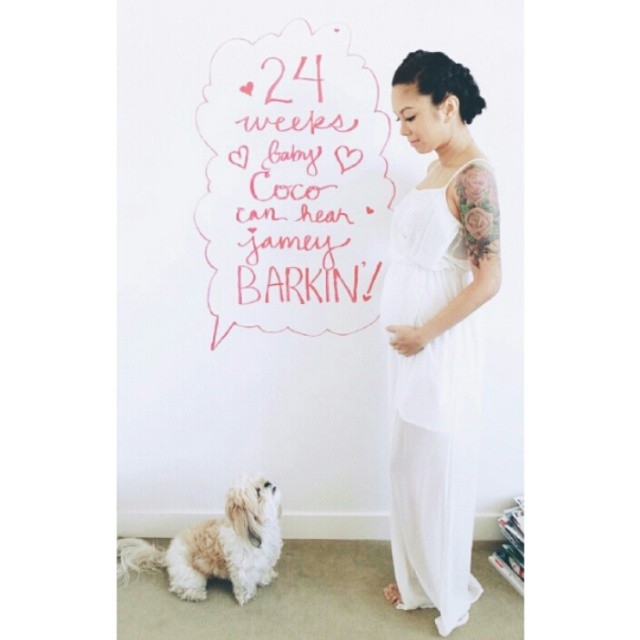 24
weeks
baby
Coco
can hear
jamey
BARKIN'!